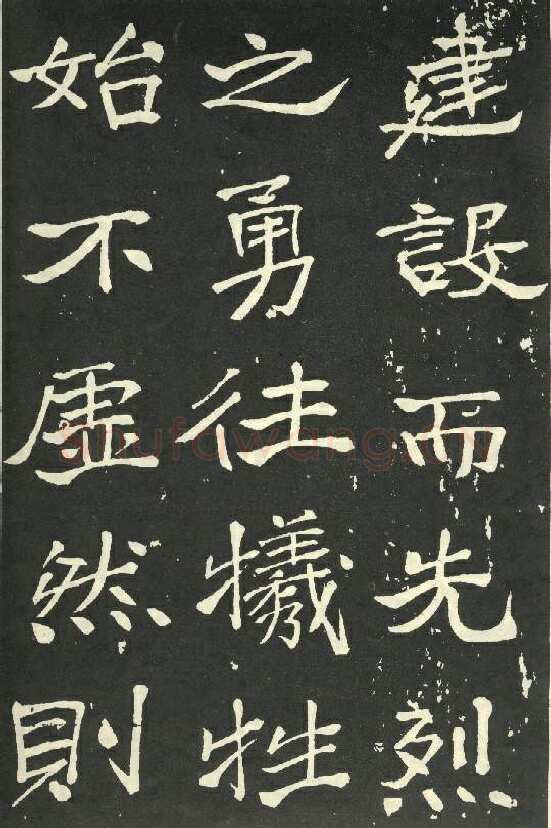 建設而先烈
之勇往犧牲
始不虛然則
shufawang.cn